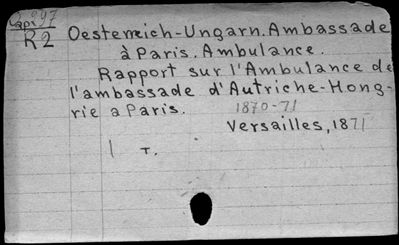 Cap. 97
R2
Oesterreich-Ungarn. Ambassade
à Paris. Ambulance.
Rapport sur l'Ambulance de
l'ambassade d'Autriche-Hong-
rie a Paris. 1870-71
Versailles, 1871
1 T.